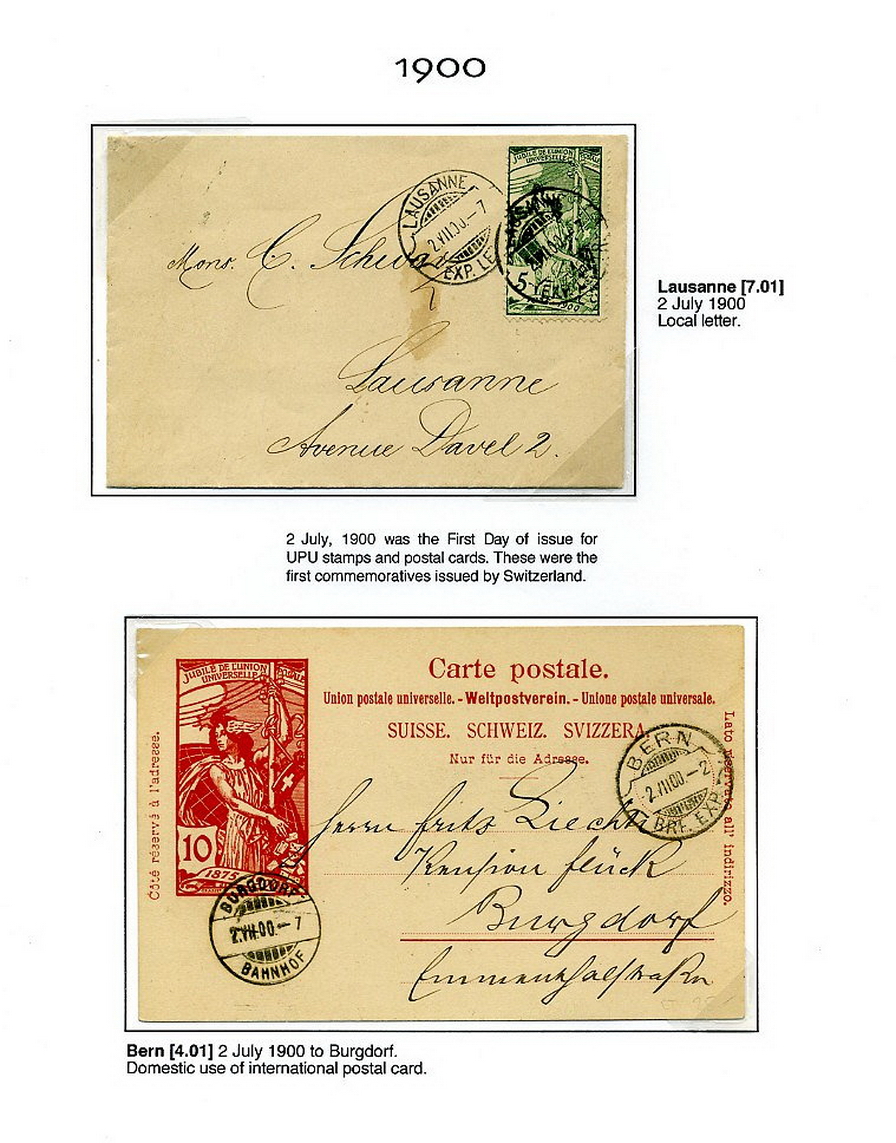 1900
JUBILÉ DE L'UNION POSTALE
UNIVERSELLE
5
1900
LAUSANNE
2.VII.00.–7
EXP. LE
LAUSANNE
Mons. C. Schwar
Lausanne
Avenue Davel 2.
Lausanne [7.01]
2 July 1900
Local letter.
2 July, 1900 was the First Day of issue for
UPU stamps and postal cards. These were the
first commemoratives issued by Switzerland.
JUBILÉ DE L'UNION POSTALE
UNIVERSELLE
10
1875
Carte postale.
Union postale universelle. - Weltpostverein. - Unione postale universale.
SUISSE. SCHWEIZ. SVIZZERA.
Nur für die Adresse.
Côté réservé à l'adresse.
Lato riservato all' indirizzo.
BERN
2.VII.00–2
BRF. EXP.
Herrn Fritz Liechti
Pension Flück
Burgdorf
Emmenthalstraße
BURGDORF
2.VII.00.–7
BAHNHOF
Bern [4.01] 2 July 1900 to Burgdorf.
Domestic use of international postal card.